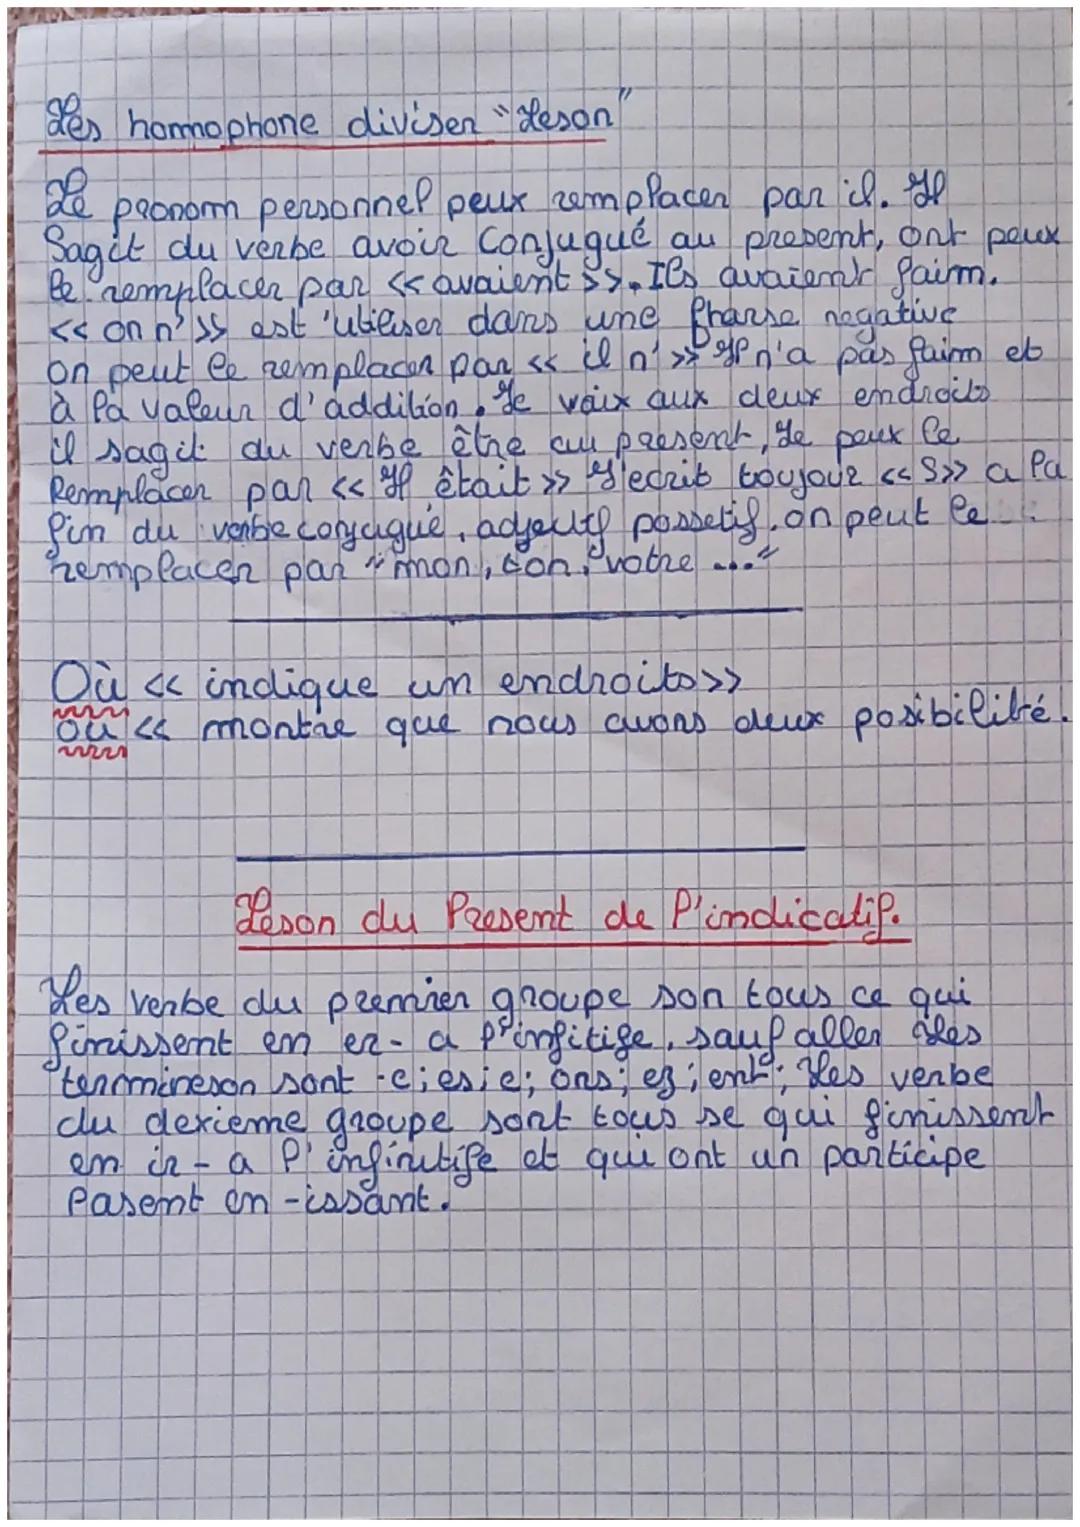 Les homnophone diviser "Leson"
Le pronom personnel peux remplacer par il. Il
Sagit du verbe avoir Conjugué au present, ont peux
le remplacer par << avaient >>. Ils avaient faim.
<< on n' >> est 'utiliser dans une phrase negative
on peut le remplacer par << il n' >> Il n'a pas faim et
à la valeur d'addition. Je vaix aux deux endroits
il sagit du verbe être au present, Je peux le
Remplacer par << Il était >> s'ecrit toujour << S >> a la
fin du verbe conjugué, adjectif possetif. on peut le
remplacer par "mon, ton, votre ..."
Où << indique un endroits >>
ou << montre que nous avons deux posibilité.
Leson du Present de l'indicatif.
Les verbe du premier groupe son tous ce qui
finissent en er- a l'infitife, sauf aller Les
termineson sont -e; es; e; ons; ez; ent; Les verbe
du dexieme groupe sont tous se qui finissent
en ir - a l'infinitife et qui ont un participe
Pasent en -issant.